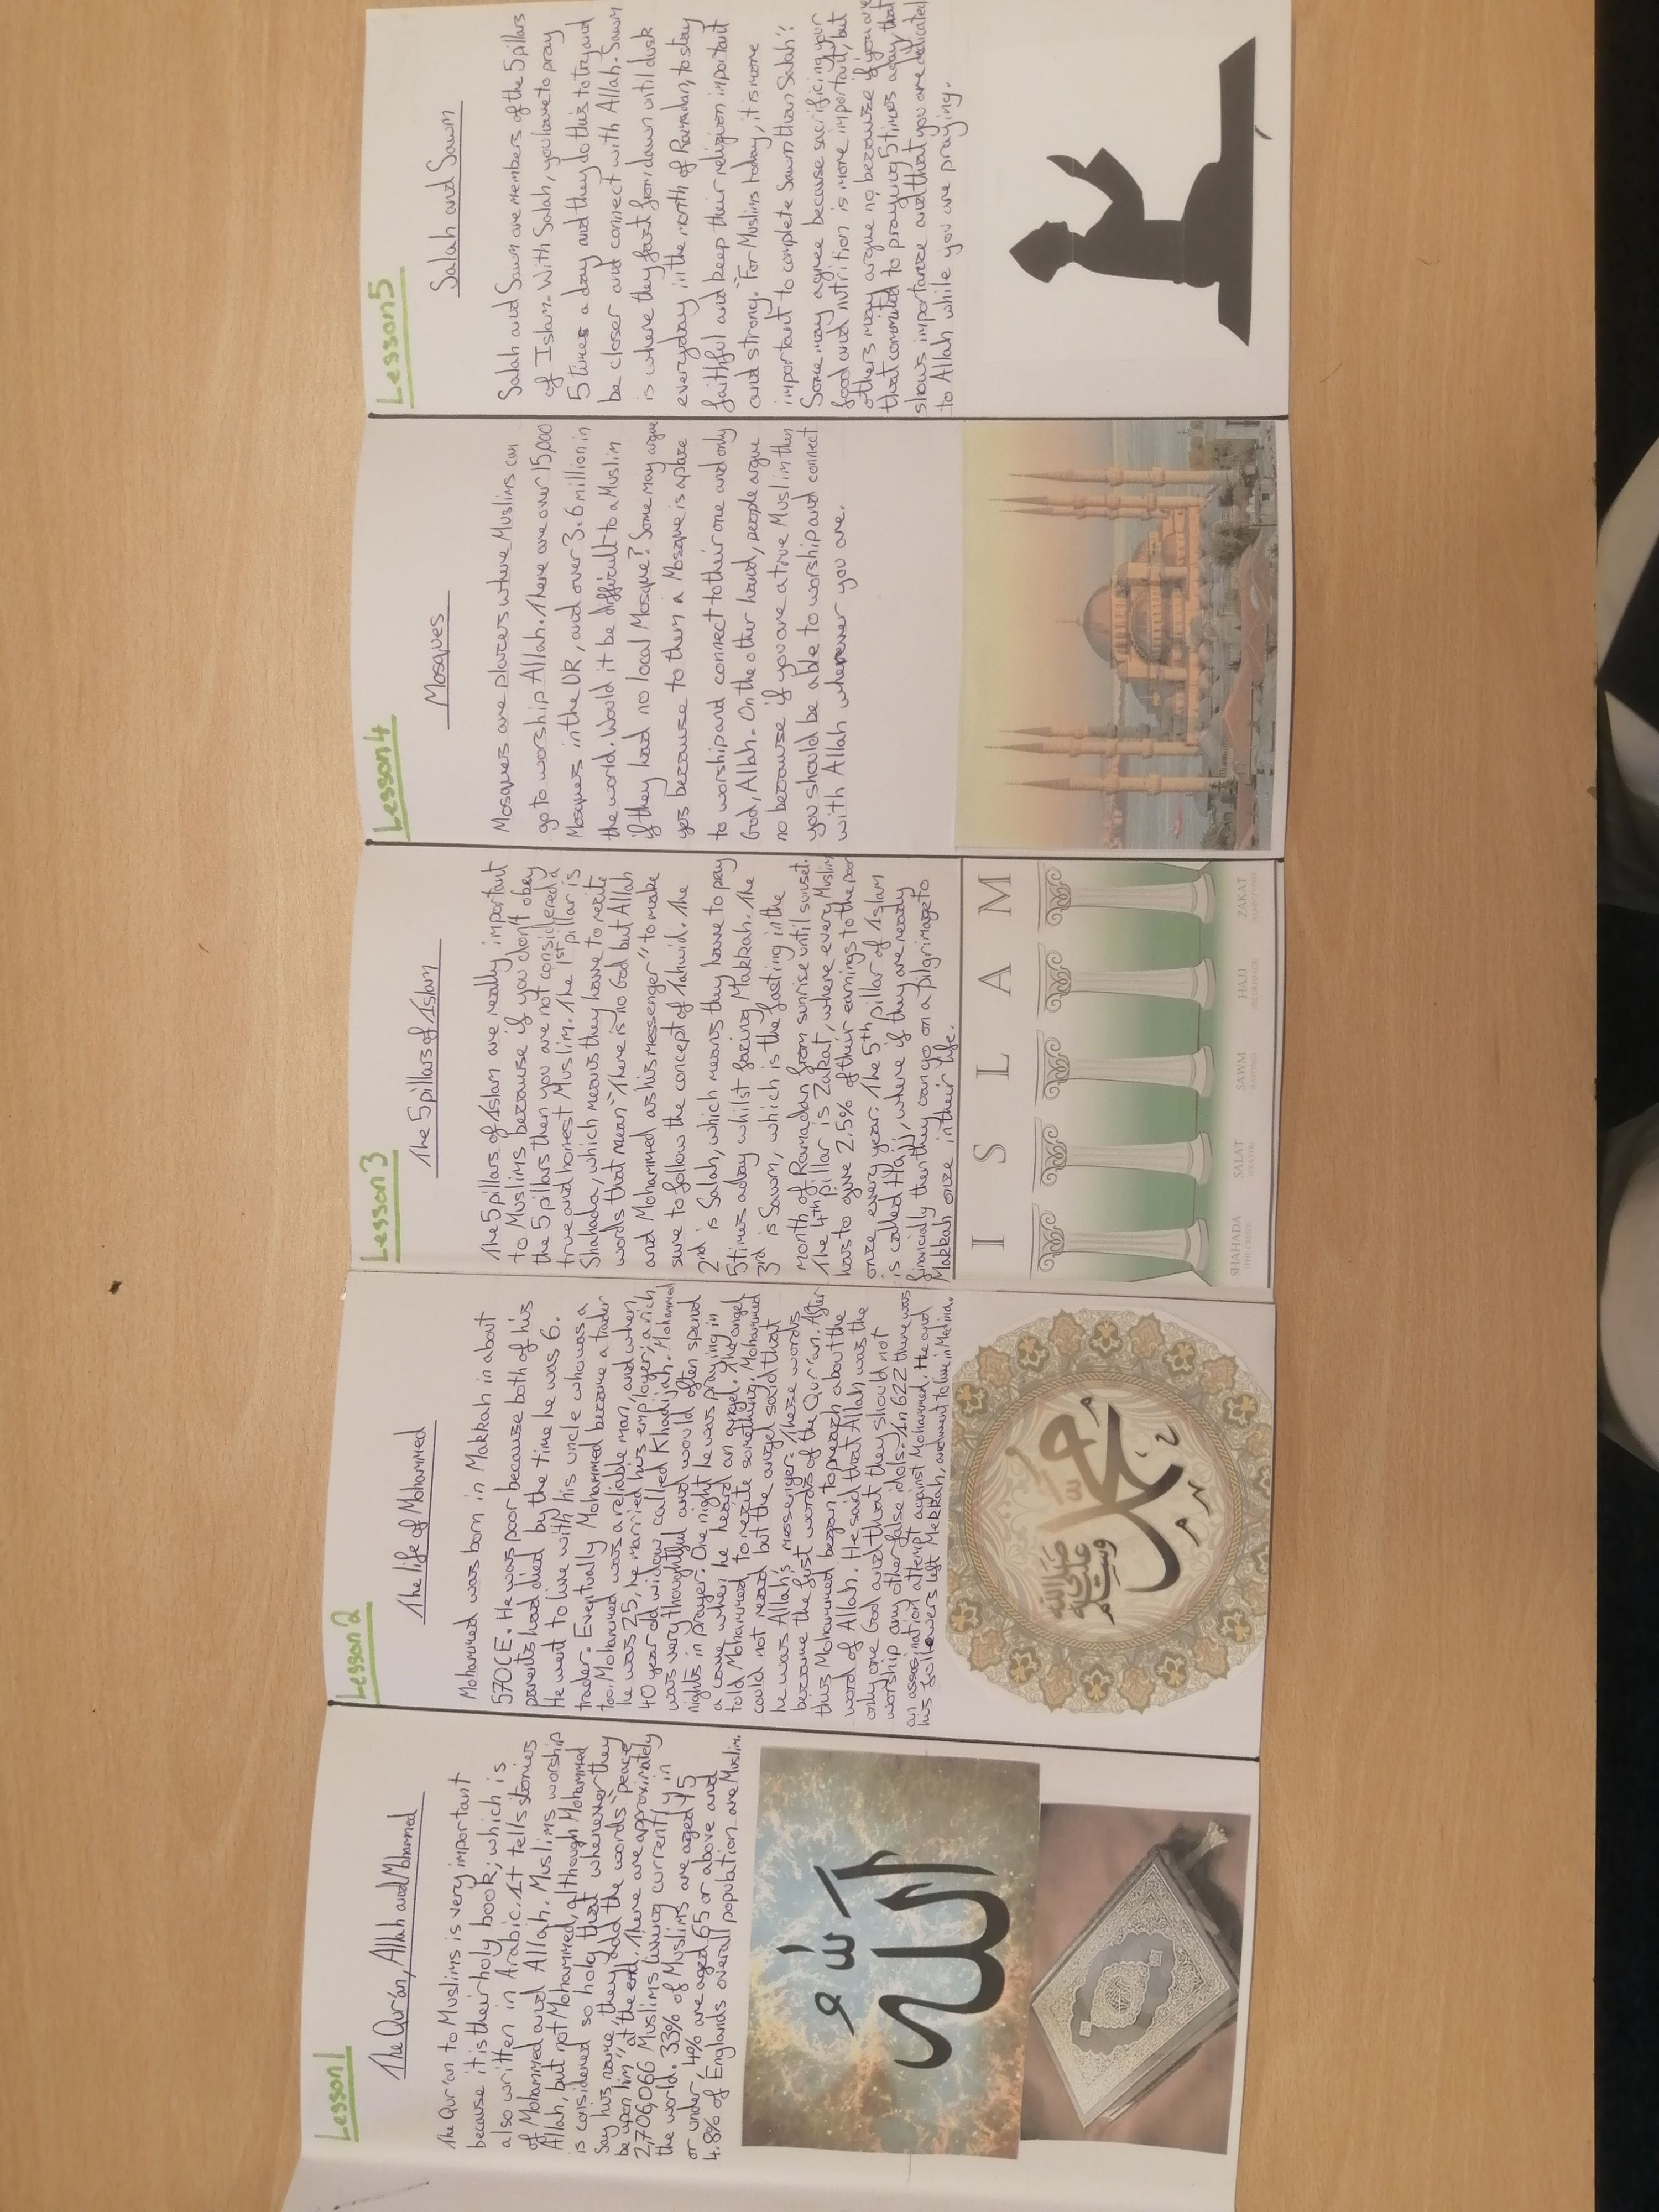 Lesson 1
The Qur'an, Allah and Mohammed
The Qur'an to Muslims is very important
because it is their holy book; which is
also written in Arabic. It tells stories
of Mohammed and Allah. Muslims worship
Allah, but not Mohammed, although Mohammed
is considered so holy that whenever they
say his name, they add the words "peace
be upon him" at the end. There are approximately
2,706,066 Muslims living currently in
the world. 33% of Muslims are aged 15
or under, 4% are aged 65 or above and
4.8% of Englands overall population are Muslim.
الله
Lesson 2
The life of Mohammed
Mohammed was born in Makkah in about
570CE. He was poor because both of his
parents had died by the time he was 6.
He went to live with his uncle who was a
trader. Eventually Mohammed became a trader
too. Mohammed was a reliable man, and when
he was 25, he married his employer; a rich,
40 year old widow called Khadijah. Mohammed
was very thoughtful and would often spend
nights in prayer. One night he was praying in
a cave when he heard an angel. The angel
told Mohammed to recite something. Mohammed
could not read but the angel said that
he was Allah's messenger. These words
became the first words of the Qur'an. After
this Mohammed began to preach about the
word of Allah. He said that Allah was the
only one God and that they should not
worship any other false idols. In 622 there was
an assasination attempt against Mohammed. He and
his followers left Mekkah, and went to live in Medina.
محمد
صلى الله
عليه
وسلم
Lesson 3
The 5 pillars of Islam
The 5 pillars of Islam are really important
to Muslims because if you don't obey
the 5 pillars then you are not considered a
true and honest Muslim. The 1st pillar is
Shahada, which means they have to recite
words that mean "There is no God but Allah
and Mohammed as his messenger" to make
sure to follow the concept of Tahwid. The
2nd is Salah, which means they have to pray
5 times a day whilst facing Makkah. The
3rd is Sawm, which is the fasting in the
month of Ramadan from sunrise until sunset.
The 4th pillar is Zakat, where every Muslim
has to give 2.5% of their earnings to the poor
once every year. The 5th pillar of Islam
is called Hajj, where if they are ready
financially then they can go on a pilgrimage to
Makkah once in their life.
I S L A M
SHAHADA SALAT SAWM HAJJ ZAKAT
Lesson 4
Mosques
Mosques are places where Muslims can
go to worship Allah. There are over 15,000
Mosques in the UK, and over 3.6 million in
the world. Would it be difficult to a Muslim
if they had no local Mosque? Some may argue
yes because to them a Mosque is a place
to worship and connect to their one and only
God, Allah. On the other hand, people argue
no because if you are a true Muslim then
you should be able to worship and connect
with Allah wherever you are.
Lesson 5
Salah and Sawm
Salah and Sawm are members of the 5 pillars
of Islam. With Salah, you have to pray
5 times a day and they do this to try and
be closer and connect with Allah. Sawm
is where they fast from dawn until dusk
everyday in the month of Ramadan, to stay
faithful and keep their religion important
and strong. "For Muslims today, it is more
important to complete Sawm than Salah"?
Some may agree because sacrificing your
food and nutrition is more important, but
others may argue no because if you are
that commited to praying 5 times a day, that
shows importance and that you are dedicated
to Allah while you are praying.